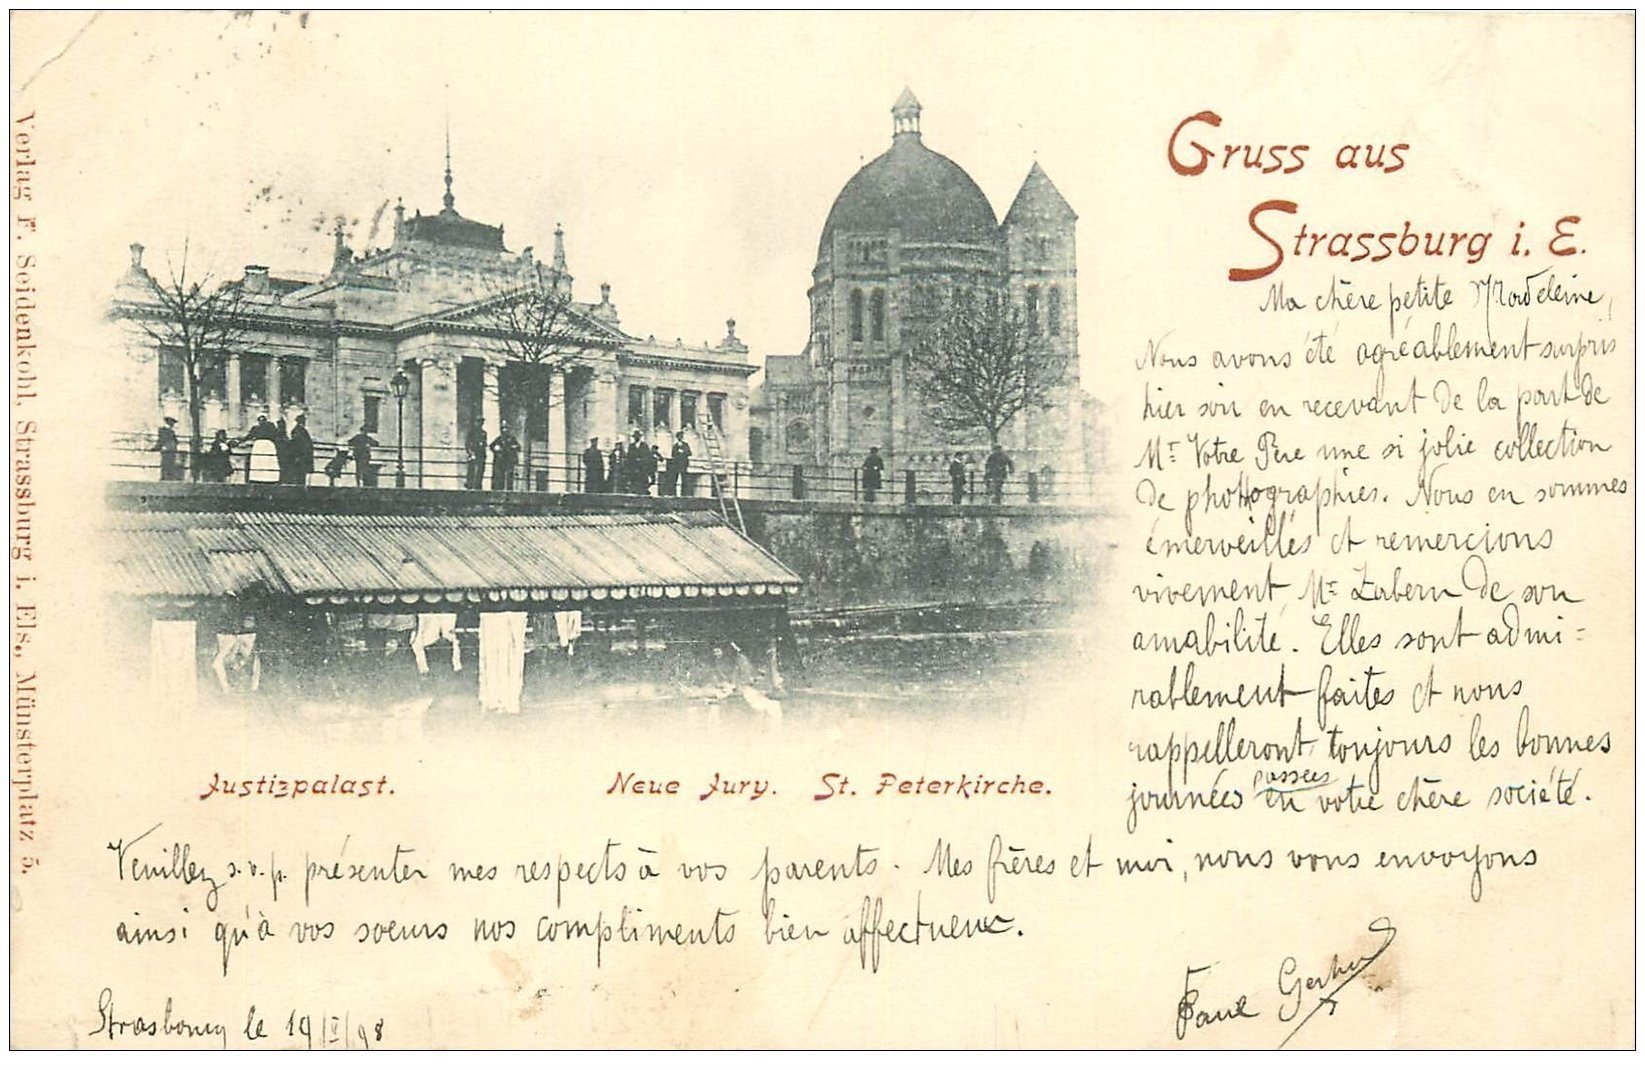 Verlag F. Seidenkohl, Strassburg i. Els., Münsterplatz 5.
Gruss aus
Strassburg i. E.
Ma chère petite Madeleine,
Nous avons été agréablement surpris
hier soir en recevant de la part de
Mr Votre Père une si jolie collection
de photographies. Nous en sommes
émerveillés et remercions
vivement Mr Zabern de son
amabilité. Elles sont admi=
rablement faites et nous
rappelleront toujours les bonnes
journées passées en votre chère société.
Justizpalast. Neue Jury. St. Peterkirche.
Veuillez s.v.p. présenter mes respects à vos parents. Mes frères et moi, nous vous envoyons
ainsi qu'à vos soeurs nos compliments bien affectueux.
Paul
Strasbourg le 19/II/98